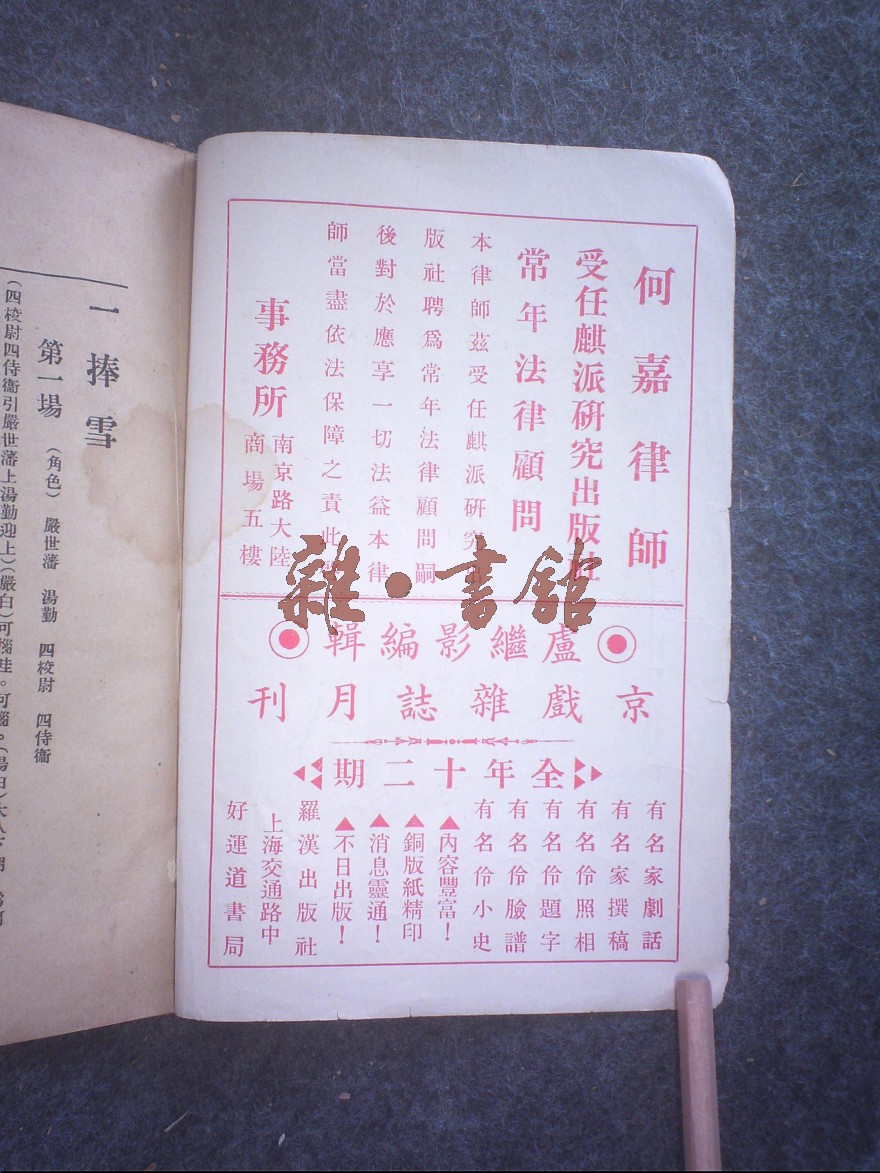 何嘉律師
受任麒派研究出版社
常年法律顧問
本律師茲受任麒派研究出
版社聘爲常年法律顧問嗣
後對於應享一切法益本律
師當盡依法保障之責此
事務所
南京路大陸
商場五樓
雜·書館
盧繼影編輯
京戲雜誌月刊
全年十二期
有名家劇話
有名家撰稿
有名伶照相
有名伶題字
有名伶臉譜
有名伶小史
▲內容豐富！
▲銅版紙精印
▲消息靈通！
▲不日出版！
羅漢出版社
上海交通路中
好運道書局
一捧雪
第一場
（角色） 嚴世藩 湯勤 四校尉 四侍衞
（四校尉四侍衞引嚴世藩上湯勤迎上）（嚴白）可惱哇。可惱。（湯白）